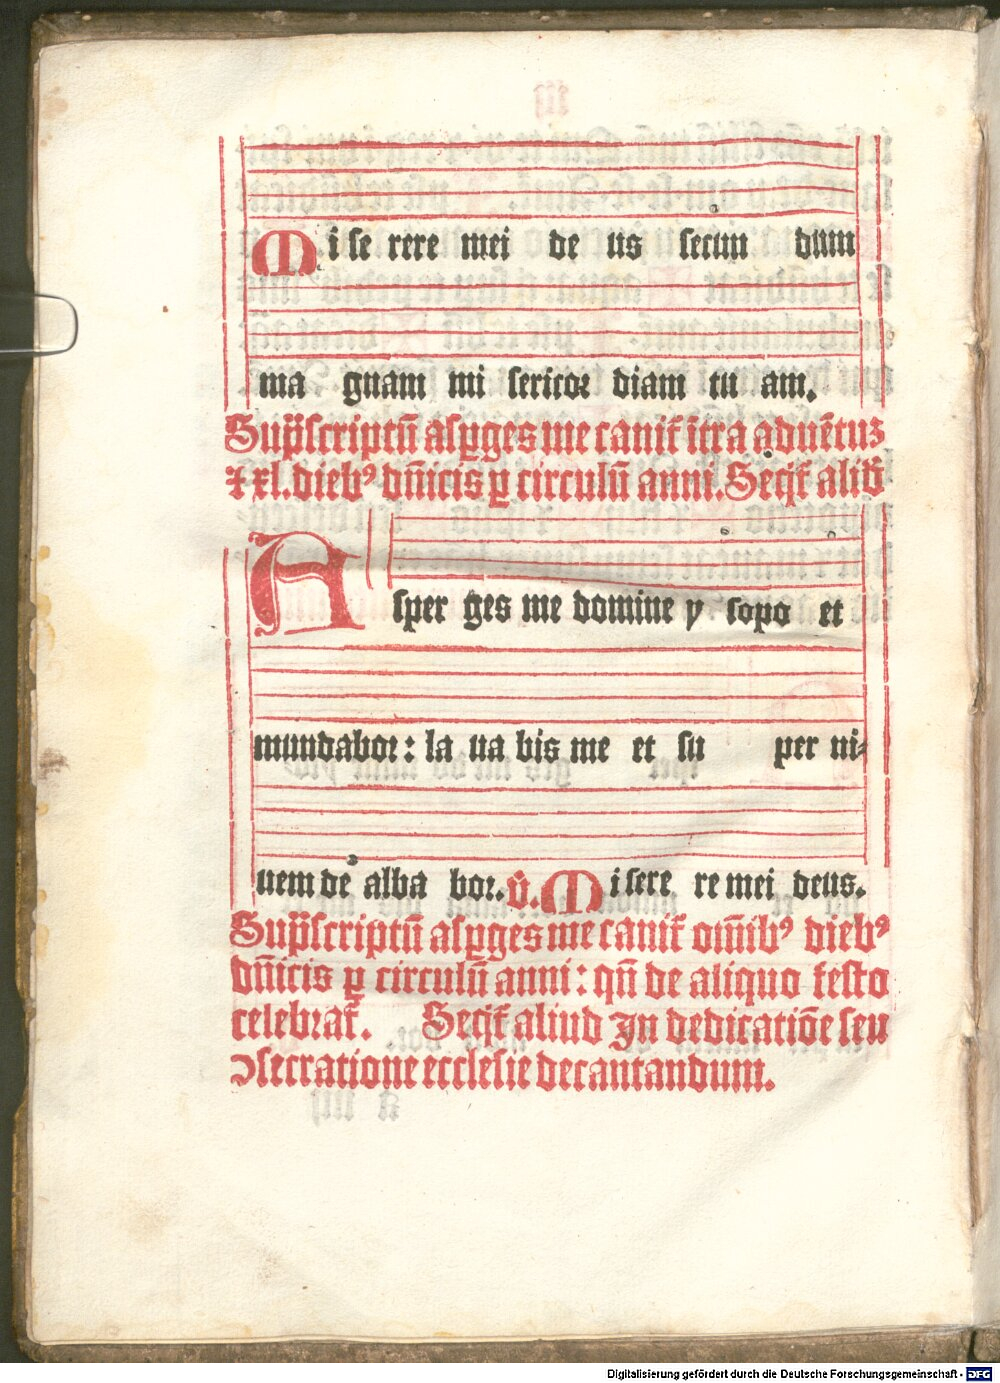 Mi se rere mei de us secun dum
ma gnam mi sericor diam tu am.
Sup̄scriptū asꝑges me canit̄ ītra aduētuꝫ
⁊ xl. diebꝰ dn̄icis ꝑ circulū anni. Seqt̄ aliḋ
Asper ges me domine y sopo et
mundabor: la ua bis me et su per ni⸗
uem de alba bor. v̄. Misere re mei deus.
Sup̄scriptū asꝑges me canit̄ om̄ibꝰ diebꝰ
dn̄icis ꝑ circulū anni: qn̄ de aliquo festo
celebrat̄. Seqt̄ aliud In dedicatiōe seu
ↄsecratione ecclesie decantandum.
Digitalisierung gefördert durch die Deutsche Forschungsgemeinschaft - DFG